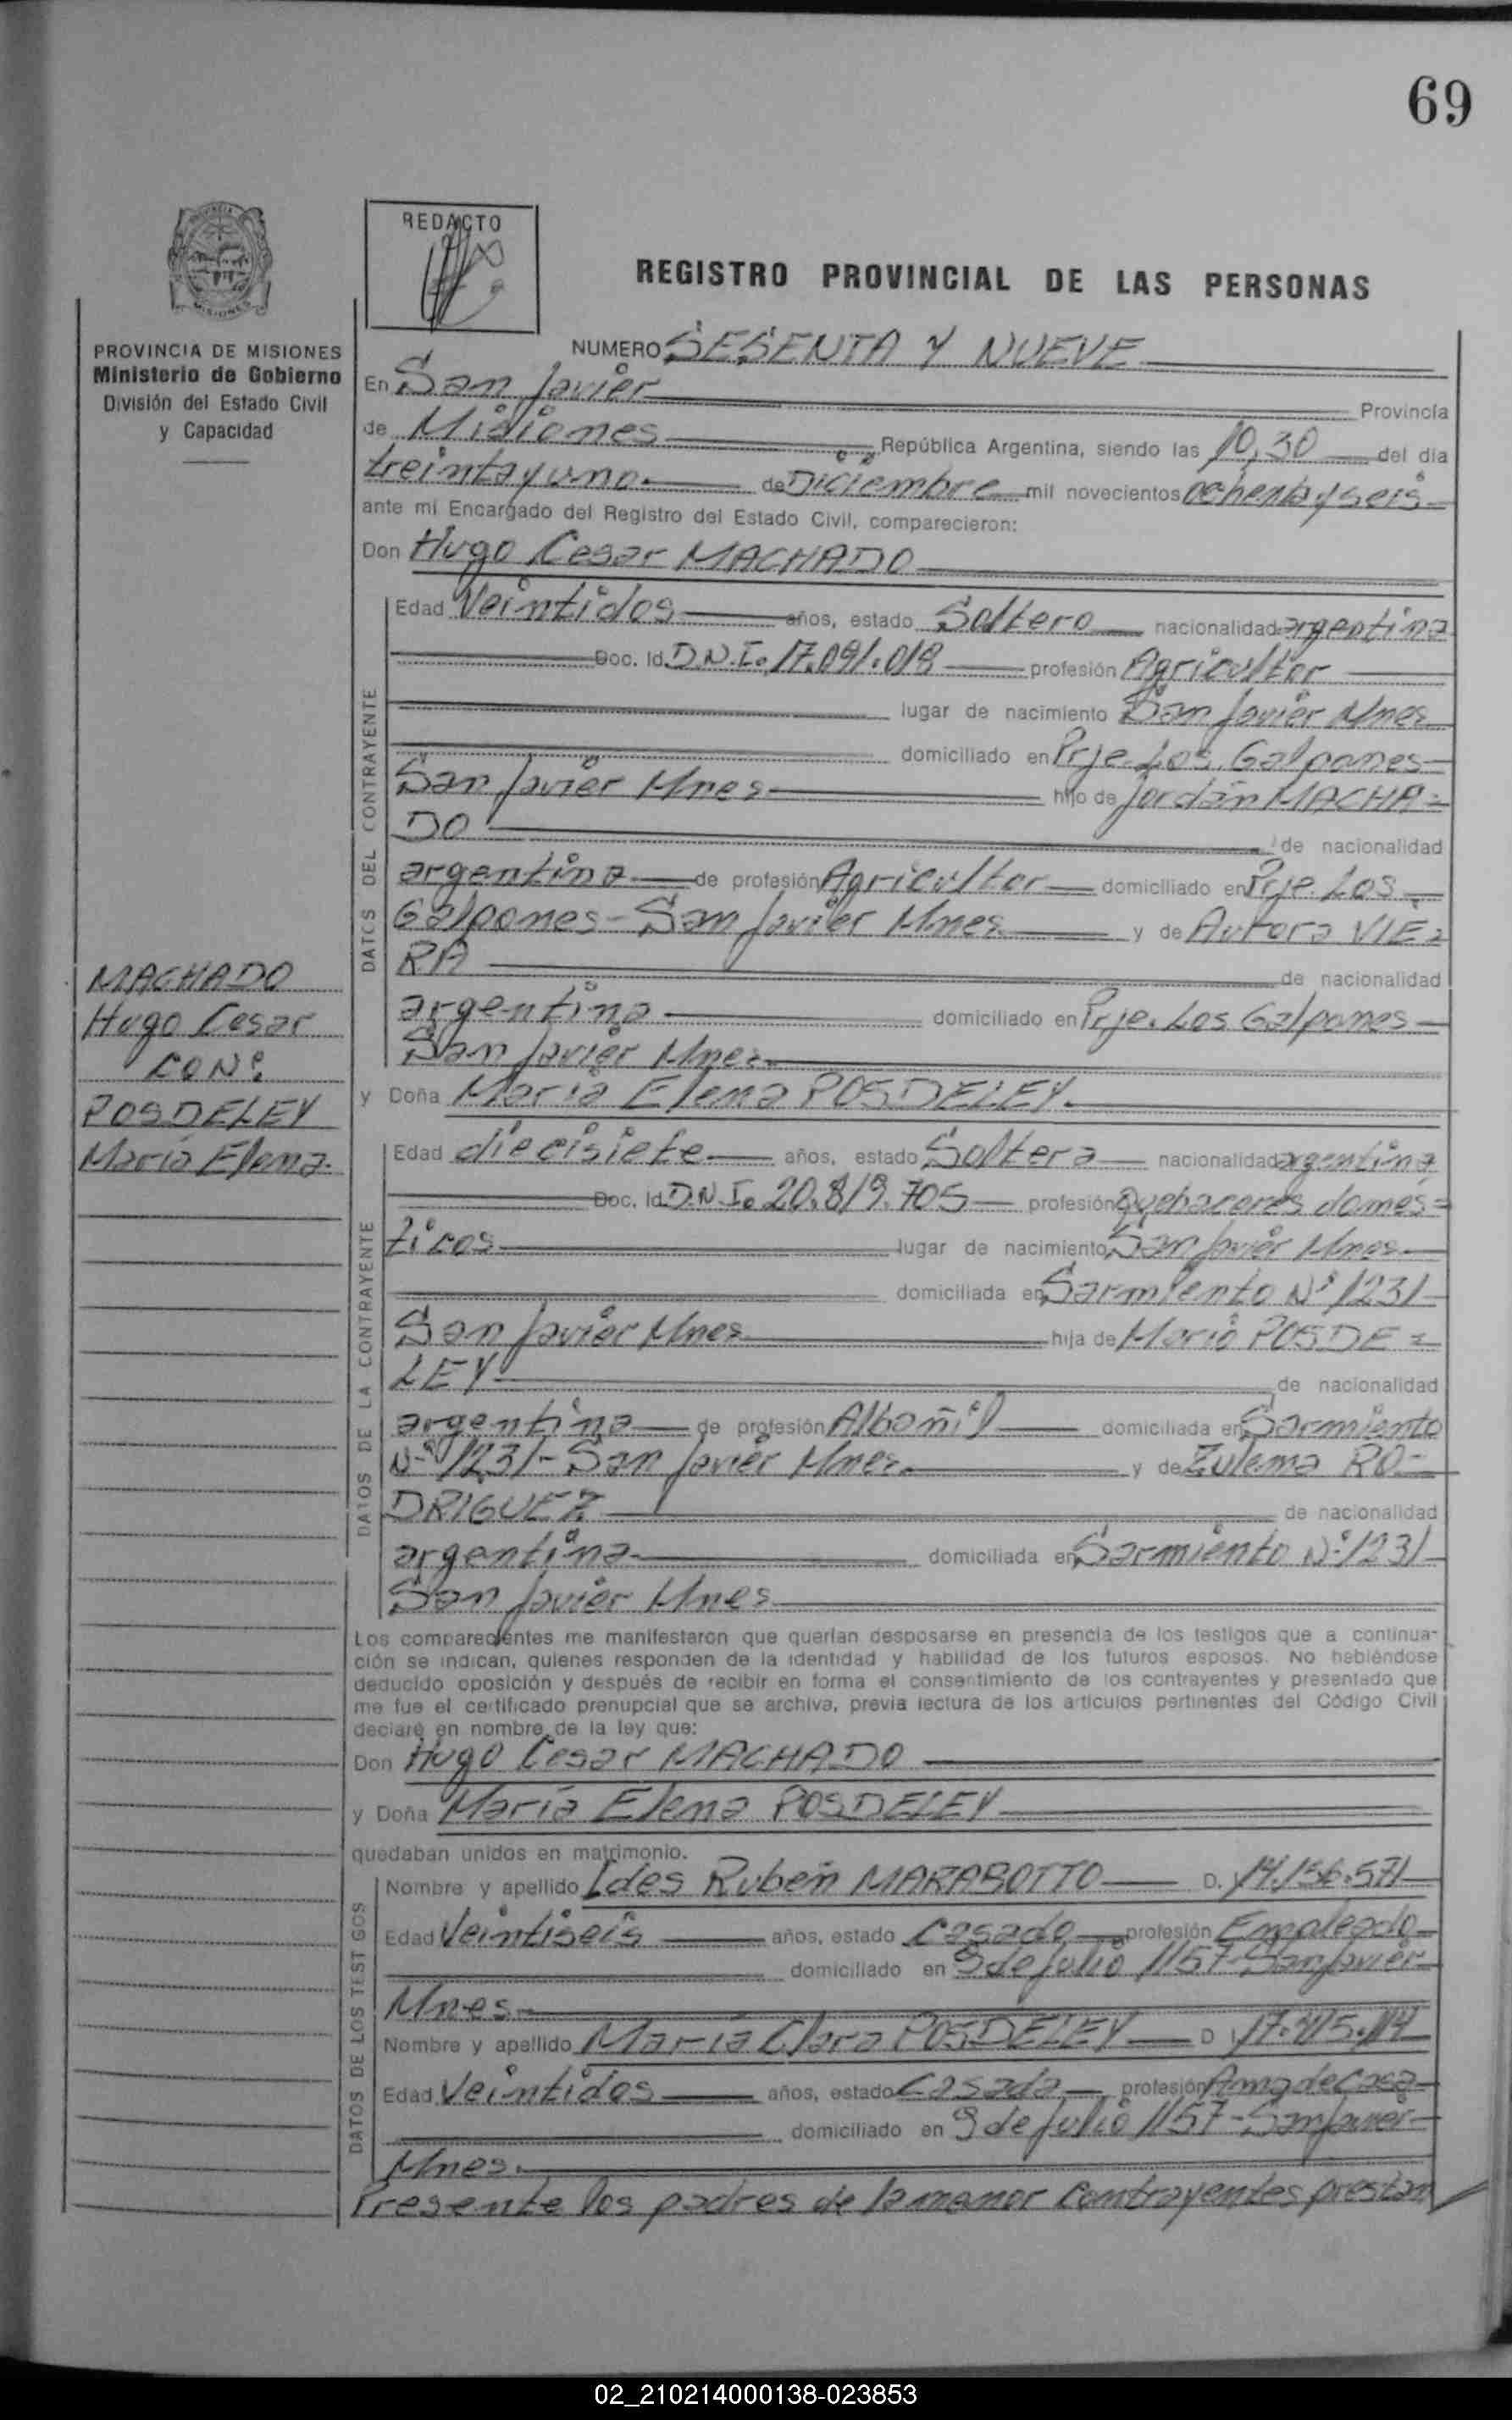 69
REDACTO
REGISTRO PROVINCIAL DE LAS PERSONAS
PROVINCIA DE MISIONES
Ministerio de Gobierno
División del Estado Civil
y Capacidad
MACHADO
Hugo Cesar
CON:
POSDELEY
María Elena.
NUMERO SESENTA Y NUEVE
En San Javier Provincia
de Misiones República Argentina, siendo las 10,30 del día
treinta y uno de Diciembre mil novecientos ochenta y seis
ante mí Encargado del Registro del Estado Civil, comparecieron:
Don Hugo Cesar MACHADO
DATOS DEL CONTRAYENTE
Edad Veintidos años, estado Soltero nacionalidad argentina
Doc. Id. D.N.I. 17.091.018 profesión Agricultor
lugar de nacimiento San Javier Mnes
domiciliado en Prje. Los Galpones
San Javier Mnes hijo de Jordán MACHA=
DO de nacionalidad
argentina de profesión Agricultor domiciliado en Prje. Los
Galpones - San Javier Mnes. y de Aurora VIE=
RA de nacionalidad
argentina domiciliado en Prje. Los Galpones
San Javier Mnes.
y Doña María Elena POSDELEY.
DATOS DE LA CONTRAYENTE
Edad diecisiete años, estado Soltera nacionalidad argentina
Doc. Id. D.N.I. 20.819.705 profesión Quehaceres domés=
ticos lugar de nacimiento San Javier Mnes
domiciliada en Sarmiento Nº 1231
San Javier Mnes hija de Mario POSDE=
LEY de nacionalidad
argentina de profesión Albañil domiciliada en Sarmiento
Nº 1231 - San Javier Mnes. y de Zulema RO-
DRIGUEZ de nacionalidad
argentina domiciliada en Sarmiento Nº 1231
San Javier Mnes
Los comparecientes me manifestaron que querían desposarse en presencia de los testigos que a continua-
ción se indican, quienes responden de la identidad y habilidad de los futuros esposos. No habiéndose
deducido oposición y después de recibir en forma el consentimiento de los contrayentes y presentado que
me fue el certificado prenupcial que se archiva, previa lectura de los artículos pertinentes del Código Civil
declaré en nombre de la ley que:
Don Hugo Cesar MACHADO
y Doña María Elena POSDELEY
quedaban unidos en matrimonio.
DATOS DE LOS TESTIGOS
Nombre y apellido Ides Rubén MARABOTTO D. 14.156.571
Edad Veintiseis años, estado Casado profesión Empleado
domiciliado en 9 de Julio 1157 - San Javier
Mnes.
Nombre y apellido María Clara POSDELEY D I 17.415.114
Edad Veintidos años, estado Casada profesión Ama de casa
domiciliado en 9 de Julio 1157 - San Javier
Mnes.
Presente los padres de la menor contrayentes prestan
02_210214000138-023853